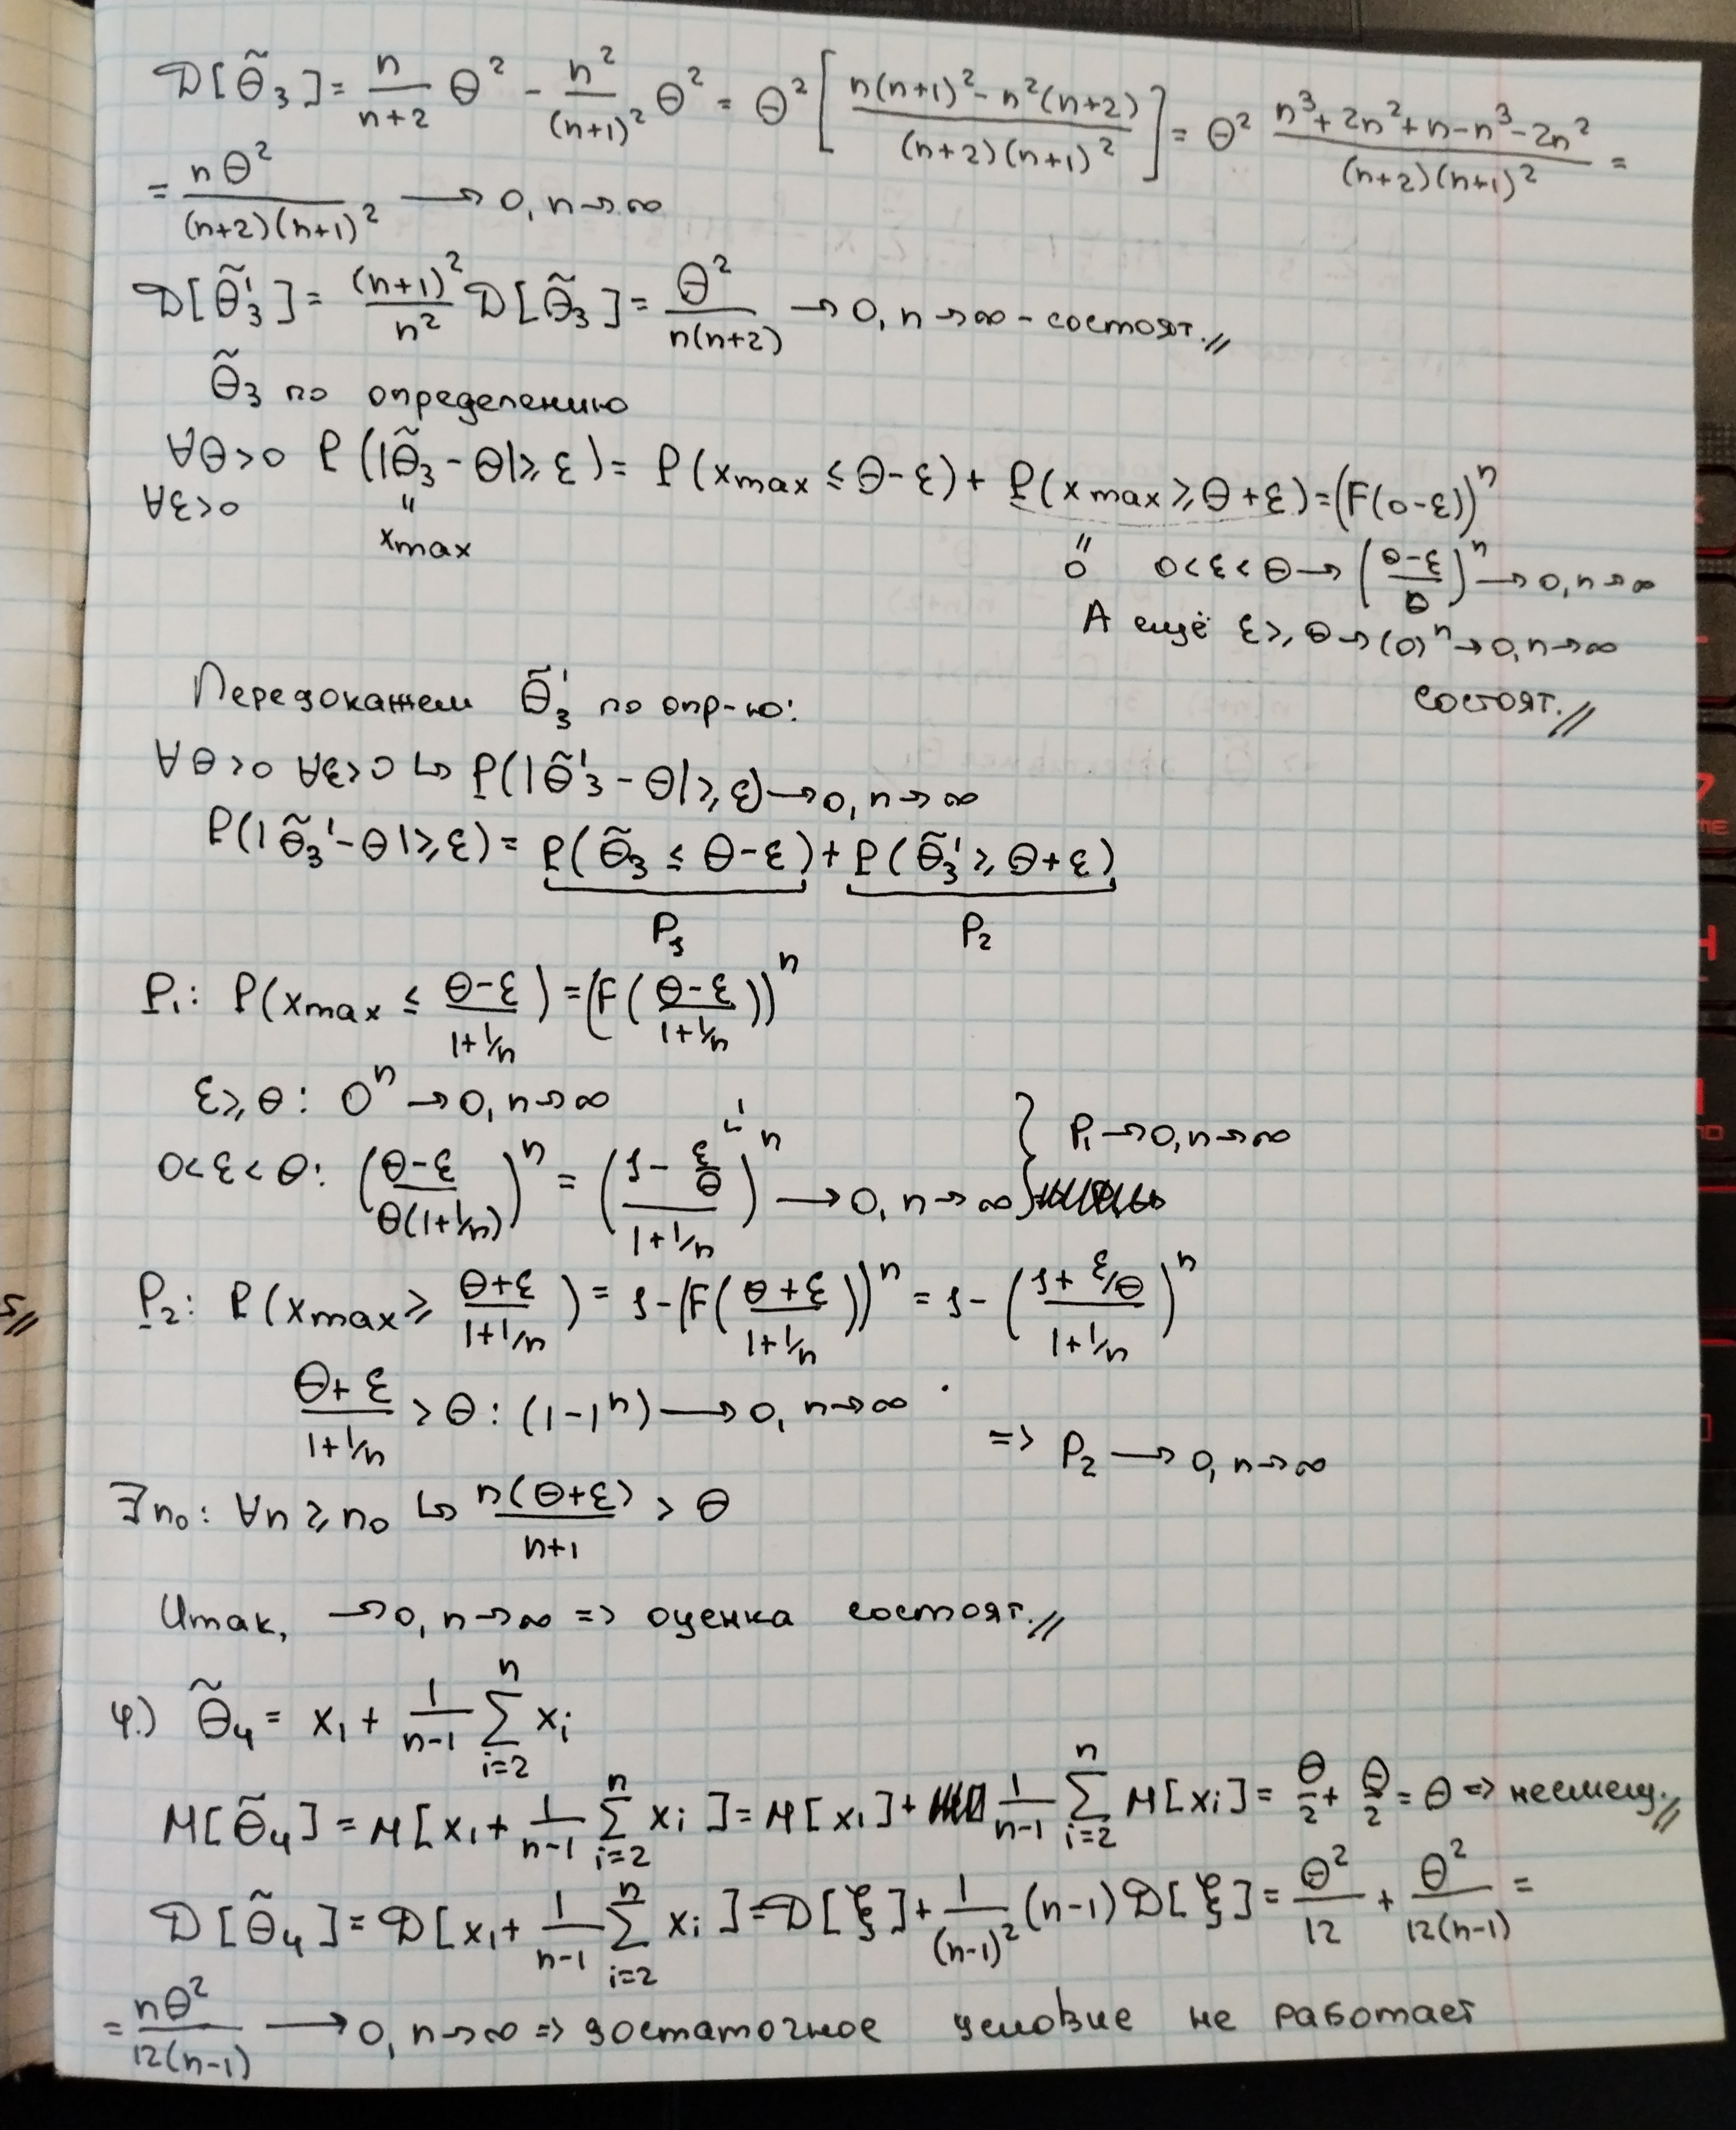 D[θ̃₃] = n/(n+2) θ² - n²/(n+1)² θ² = θ² [ (n(n+1)² - n²(n+2)) / ((n+2)(n+1)²) ] = θ² (n³+2n²+n-n³-2n²) / ((n+2)(n+1)²) =
= nθ² / ((n+2)(n+1)²) → 0, n→∞
D[θ̃₃'] = (n+1)²/n² D[θ̃₃] = θ² / (n(n+2)) → 0, n→∞ - состоят. //
θ̃₃ по определению
∀θ>0 P(|θ̃₃ - θ| ≥ ε) = P(xmax ≤ θ-ε) + P(xmax ≥ θ+ε) = (F(θ-ε))ⁿ
∀ε>0 " xmax " 0 0<ε<θ → ((θ-ε)/θ)ⁿ → 0, n→∞
А ещё ε ≥ θ → (0)ⁿ → 0, n→∞
состоят. //
Передокажем θ̃₃' по опр-ю:
∀θ>0 ∀ε>0 ↪ P(|θ̃₃' - θ| ≥ ε) → 0, n→∞
P(|θ̃₃' - θ| ≥ ε) = P(θ̃₃ ≤ θ-ε) + P(θ̃₃' ≥ θ+ε)
P₁ P₂
P₁: P(xmax ≤ (θ-ε)/(1+1/n)) = (F((θ-ε)/(1+1/n)))ⁿ
ε ≥ θ: 0ⁿ → 0, n→∞
0<ε<θ: ((θ-ε)/(θ(1+1/n)))ⁿ = ((1 - ε/θ)/(1+1/n))ⁿ → 0, n→∞ } P₁ → 0, n→∞
P₂: P(xmax ≥ (θ+ε)/(1+1/n)) = 1 - (F((θ+ε)/(1+1/n)))ⁿ = 1 - ((1+ε/θ)/(1+1/n))ⁿ
(θ+ε)/(1+1/n) > θ: (1-1ⁿ) → 0, n→∞
=> P₂ → 0, n→∞
∃n₀: ∀n ≥ n₀ ↪ n(θ+ε)/(n+1) > θ
Итак, → 0, n→∞ => оценка состоят. //
4.) θ̃₄ = x₁ + 1/(n-1) Σ_{i=2}^{n} xᵢ
M[θ̃₄] = M[x₁ + 1/(n-1) Σ_{i=2}^{n} xᵢ] = M[x₁] + 1/(n-1) Σ_{i=2}^{n} M[xᵢ] = θ/2 + θ/2 = θ => несмещ. //
D[θ̃₄] = D[x₁ + 1/(n-1) Σ_{i=2}^{n} xᵢ] = D[ξ] + 1/(n-1)² (n-1) D[ξ] = θ²/12 + θ²/(12(n-1)) =
= nθ²/(12(n-1)) → 0, n→∞ => достаточное условие не работает